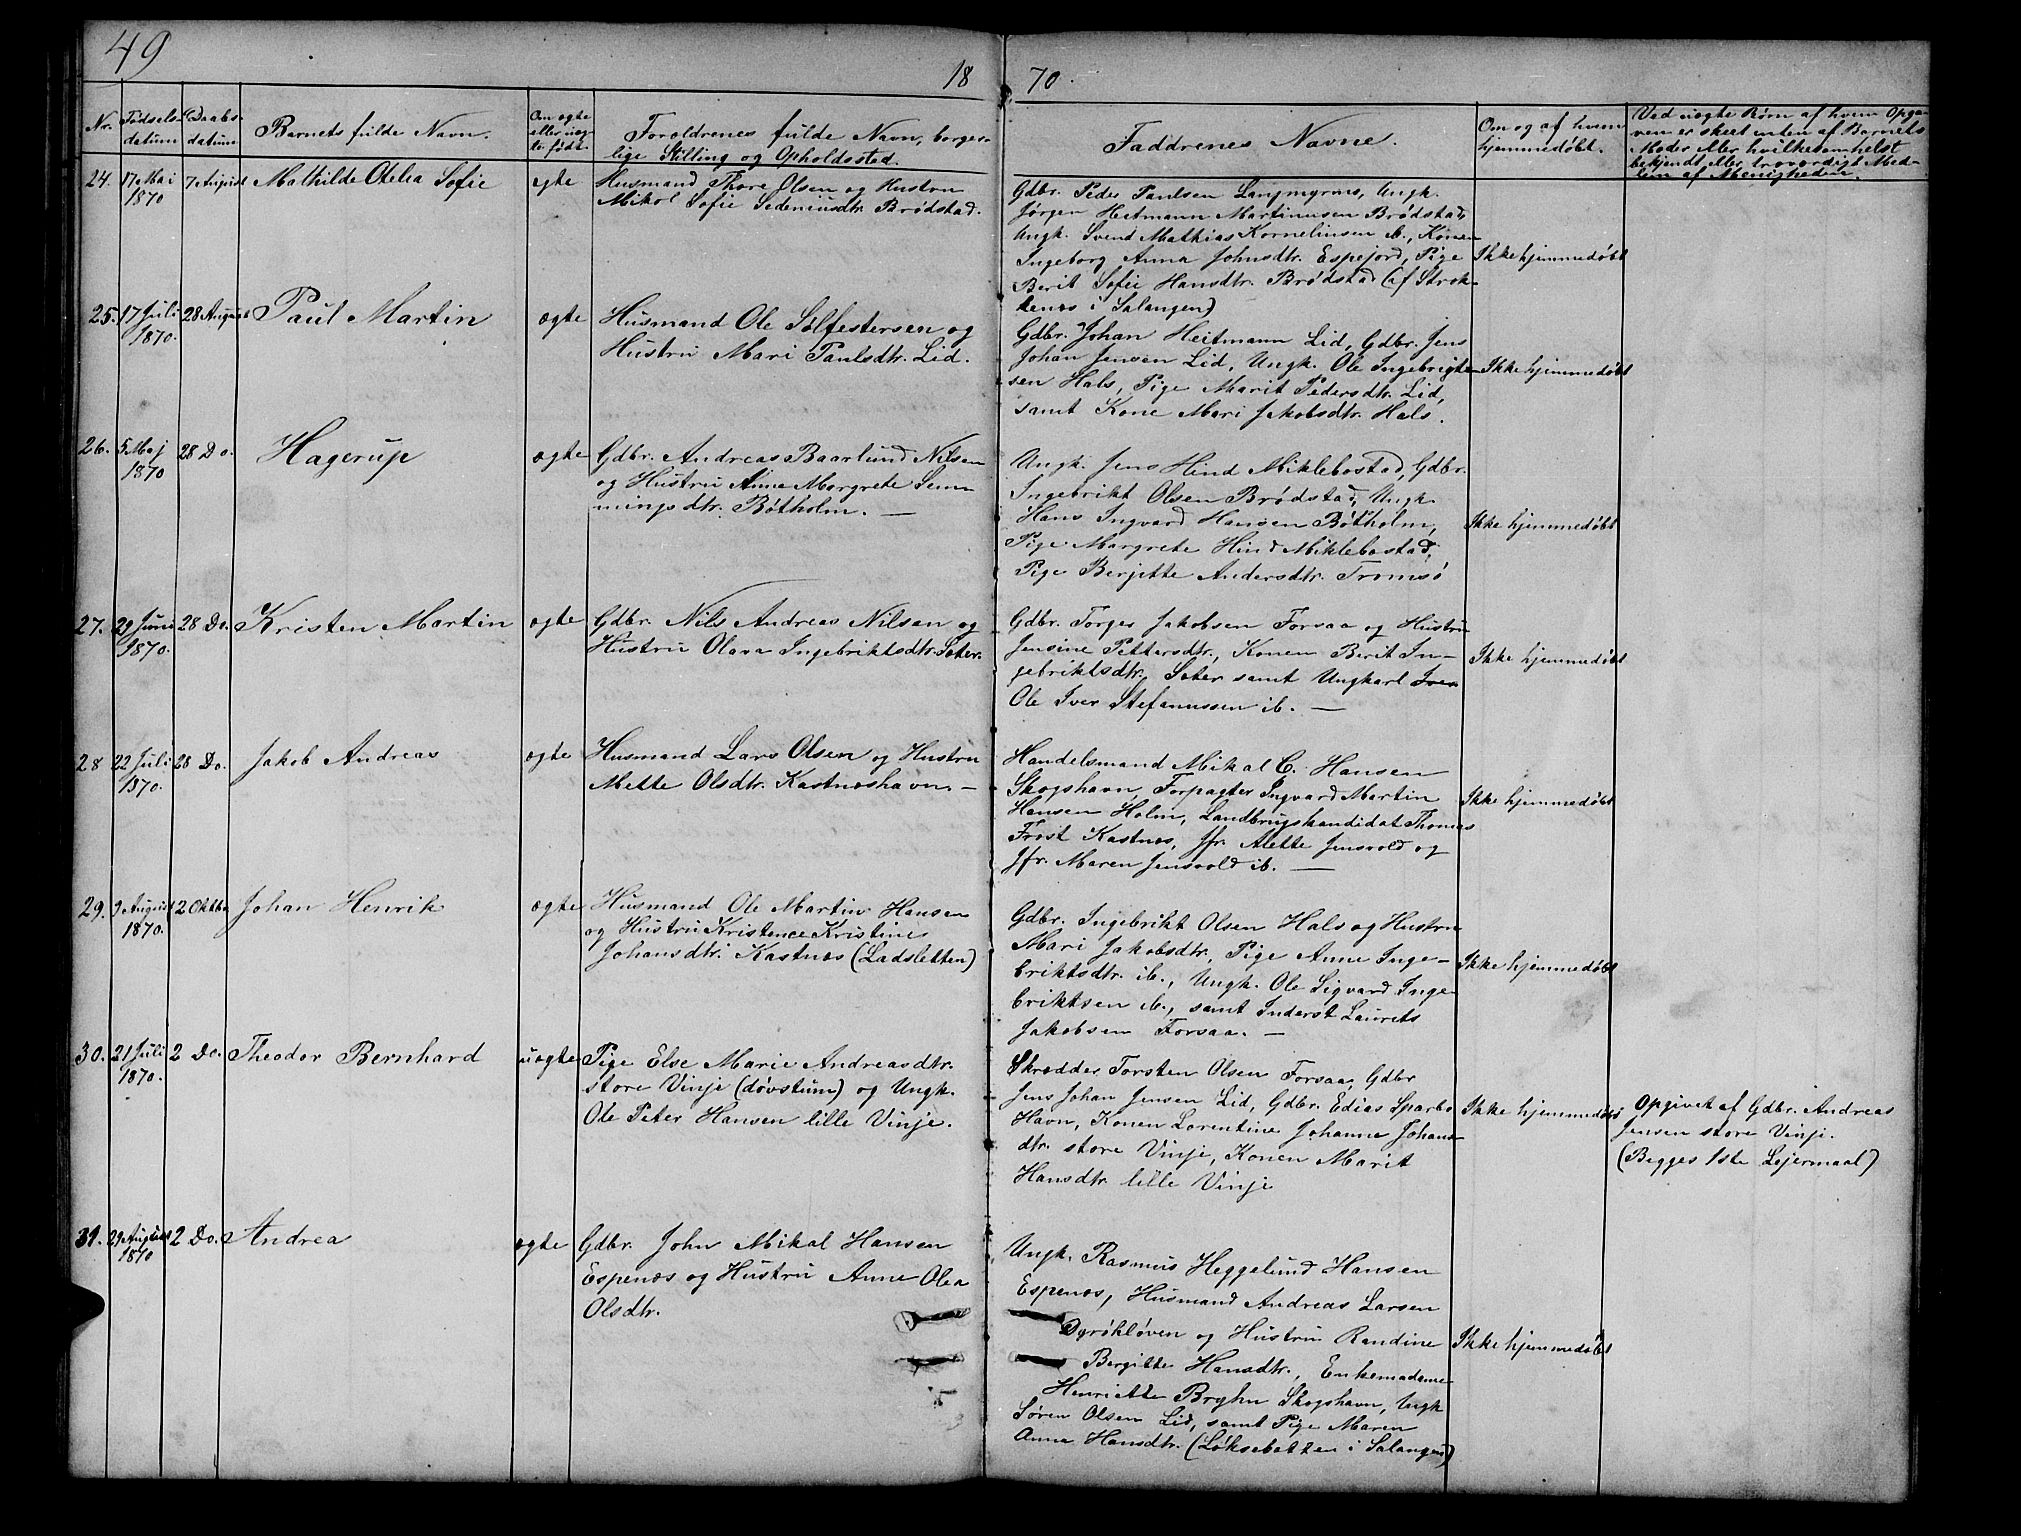 49
18 70.
Nr. Fødsels-datum Daabs-datum Barnets fulde Navn. Om ægte eller uæg-te født. Forældrenes fulde Navn, borger-lige Stilling og Opholdssted. Faddrenes Navne. Om og af hvem hjemmedøbt. Ved uægte Børn af hvem Opga-ven er skeet enten af Barnets Moder eller hvilketsomhelst bekjendt eller troværdigt Med-lem af Menigheden.
24. 17 Mai 1870 7 August Mathilde Otelia Sofie ægte
Husmand Thore Olsen og Hustru
Mikol Sofie Sedeniusdtr. Brødstad.
Gdbr. Peder Paulsen Langmyrnes, Ungk.
Jørgen Heitmann Martinusen Brødstad,
Ungk. Svend Mathias Kornelinsen ib., Konen
Ingeborg Anna Johnsdtr. Espejord, Pige
Berit Sofie Hansdtr. Brødstad (af Strok-
kenæs i Salangen)
Ikke hjemmedøbt
25. 17 Juli 1870. 28 August Paul Martin ægte
Husmand Ole Sølfestersen og
Hustru Mari Paulsdtr. Lid.
Gdbr. Johan Heitmann Lid, Gdbr. Jens
Johan Jensen Lid, Ungk. Ole Ingebrigt-
sen Hals, Pige Marit Pedersdtr. Lid,
samt Kone Mari Jakobsdtr. Hals.
Ikke hjemmedøbt
26. 5 Maj 1870 28 Do. Hagerup ægte
Gdbr. Andreas Baarlund Nilsen
og Hustru Anne Margrete Sem-
mingsdtr. Bøtholm. —
Ungk. Jens Hind Miklebostad, Gdbr.
Ingebrikt Olsen Brødstad, Ungk.
Hans Ingvard Hansen Bøtholm,
Pige Margrete Hind Miklebostad,
Pige Berjitte Andersdtr. Tromsø
Ikke hjemmedøbt
27. 29 Juni 1870. 28 Do. Kristen Martin ægte
Gdbr. Nils Andreas Nilsen og
Hustru Olava Ingebriktsdtr. Sæter.
Gdbr. Torger Jakobsen Forsaa og Hustru
Jensine Pettersdtr., Konen Berit In-
gebriktsdtr. Sæter samt Ungkarl Iver
Ole Iver Stefanussen ib. —
Ikke hjemmedøbt
28 22 Juli 1870. 28 Do. Jakob Andreas ægte
Husmand Lars Olsen og Hustru
Mette Olsdtr. Kastnæshavn. —
Handelsmand Mikal C. Hansen
Skogshavn, Forpagter Ingvard Martin
Hansen Holm, Landbrugskandidat Thomas
Frost Kastnæs, Jfr. Alette Jensvold og
Jfr. Maren Jensvold ib. —
Ikke hjemmedøbt
29. 9 August 1870. 2 Oktbr Johan Henrik ægte
Husmand Ole Martin Hansen
og Hustru Kristence Kristine
Johansdtr. Kastnæs (Ladsletten)
Gdbr. Ingebrikt Olsen Hals og Hustru
Mari Jakobsdtr., Pige Anne Inge-
briktsdtr. ib., Ungk. Ole Sigvard Inge-
briktsen ib., samt Inderst Laurits
Jakobsen Forsaa. —
Ikke hjemmedøbt
30. 21 Juli 1870. 2 Do. Theodor Bernhard uægte
Pige Else Marie Andreasdtr.
store Vinje (døvstum) og Ungk.
Ole Peter Hansen lille Vinje.
Skrædder Torsten Olsen Forsaa, Gdbr
Jens Johan Jensen Lid, Gdbr. Edias Sparbo
Havn, Konen Lorentine Johanne Johans-
dtr. store Vinje, Konen Marit
Hansdtr. lille Vinje
Ikke hjemmedøbt
Opgivet af Gdbr. Andreas
Jensen store Vinje.
(Begges 1ste Lejermaal)
31. 29 August 1870 2 Do. Andrea ægte
Gdbr. John Mikal Hansen
Espenæs og Hustru Anne Olea
Olsdtr.
Ungk. Rasmus Heggelund Hansen
Espenæs, Husmand Andreas Larsen
Dyrökløven og Hustru Randine
Bergitte Hansdtr., Enkemadame
Henriette Bryhn Skogshavn, Ungk
Søren Olsen Lid, samt Pige Maren
Anna Hansdtr. (Løksebotten i Salangen)
Ikke hjemmedøbt